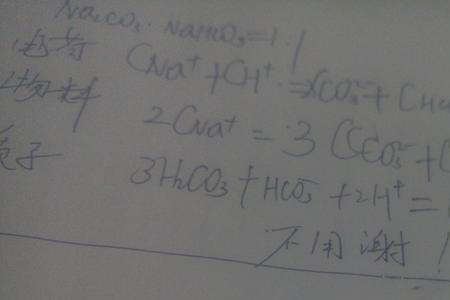 Na₂CO₃ · NaHCO₃ = 1:1
电荷 CNa⁺ + CH⁺ = 2CO₃²⁻ + CHC
物料 2CNa⁺ = 3(CCO₃²⁻ + C
质子 3H₂CO₃ + HCO₃⁻ + 2H⁺ =
不用谢!